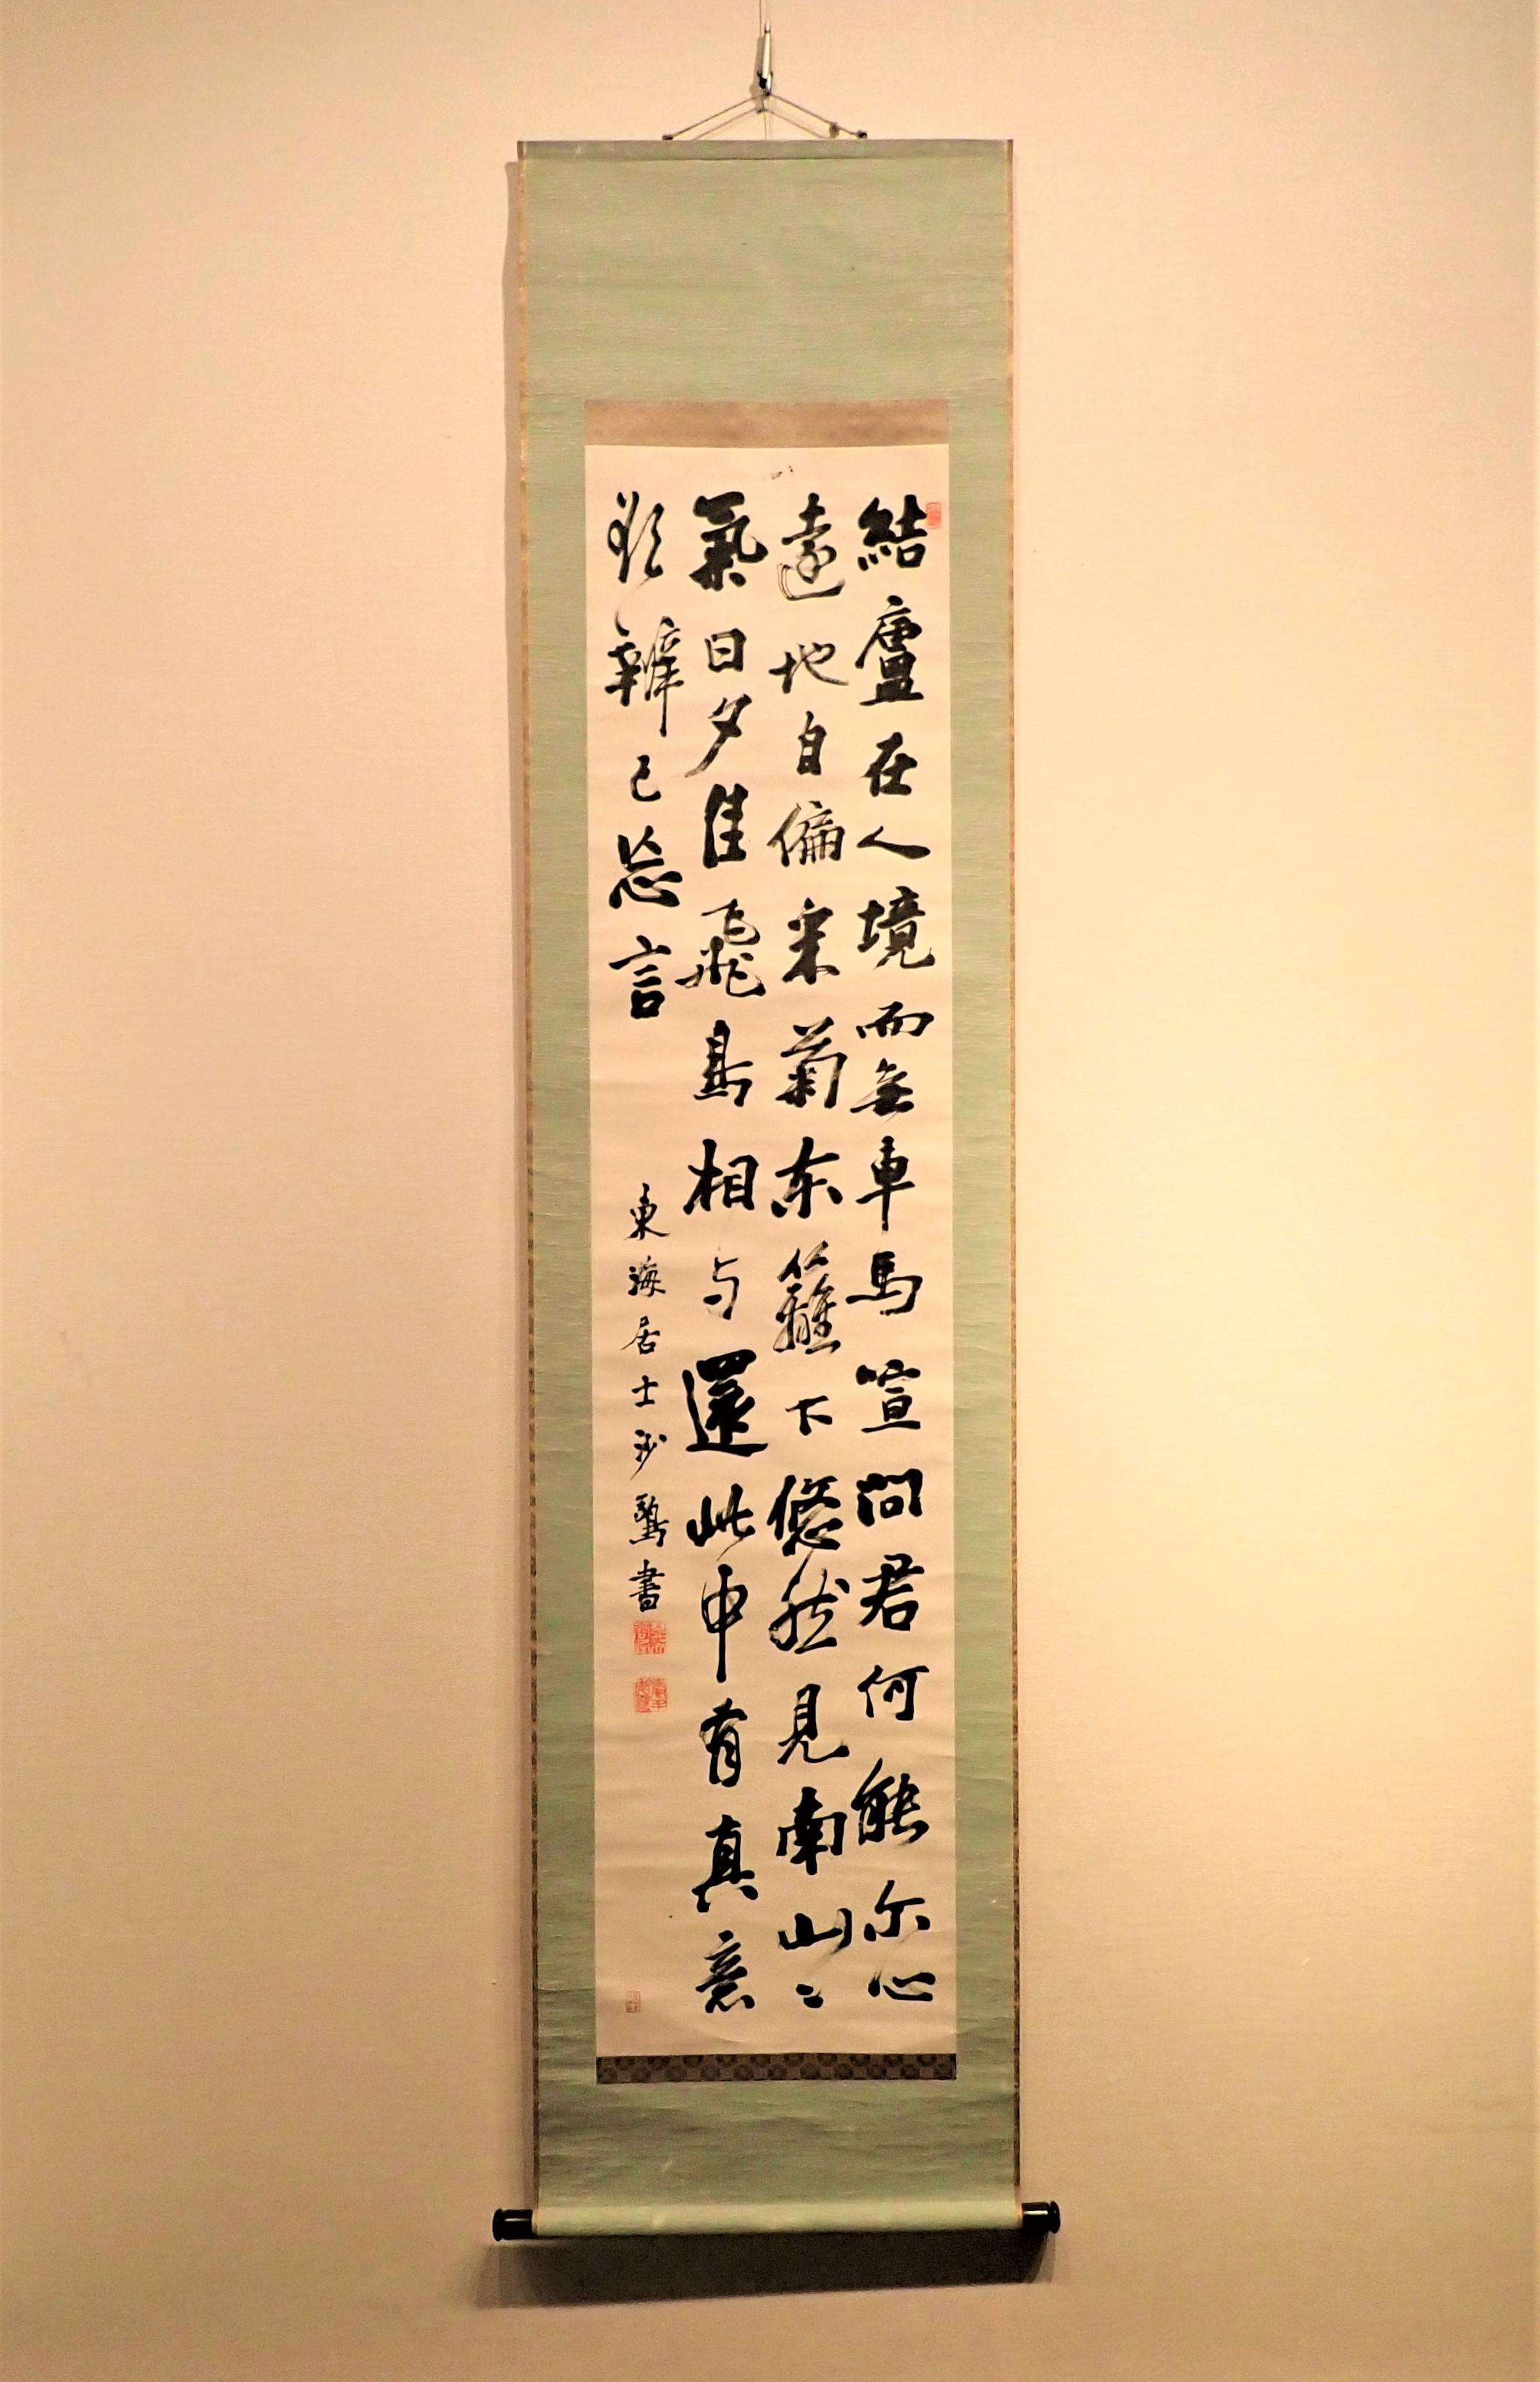 結廬在人境而無車馬喧問君何能尔心
遠地自偏采菊东籬下悠然見南山〻
氣日夕佳飛鳥相与還此中有真意
欲辨已忘言
東海居士沙鷗書